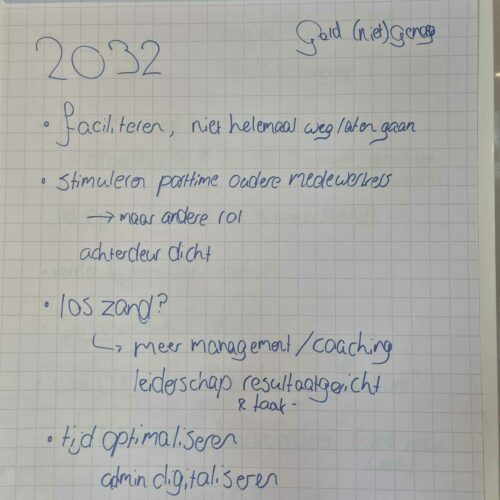 2032
Goud (niet) Genoeg
• faciliteren, niet helemaal weg laten gaan
• stimuleren parttime oudere medewerkers
→ maar andere rol
achterdeur dicht
• los zand?
↳ meer management / coaching
leiderschap resultaatgericht
& taak-
• tijd optimaliseren
admin digitaliseren